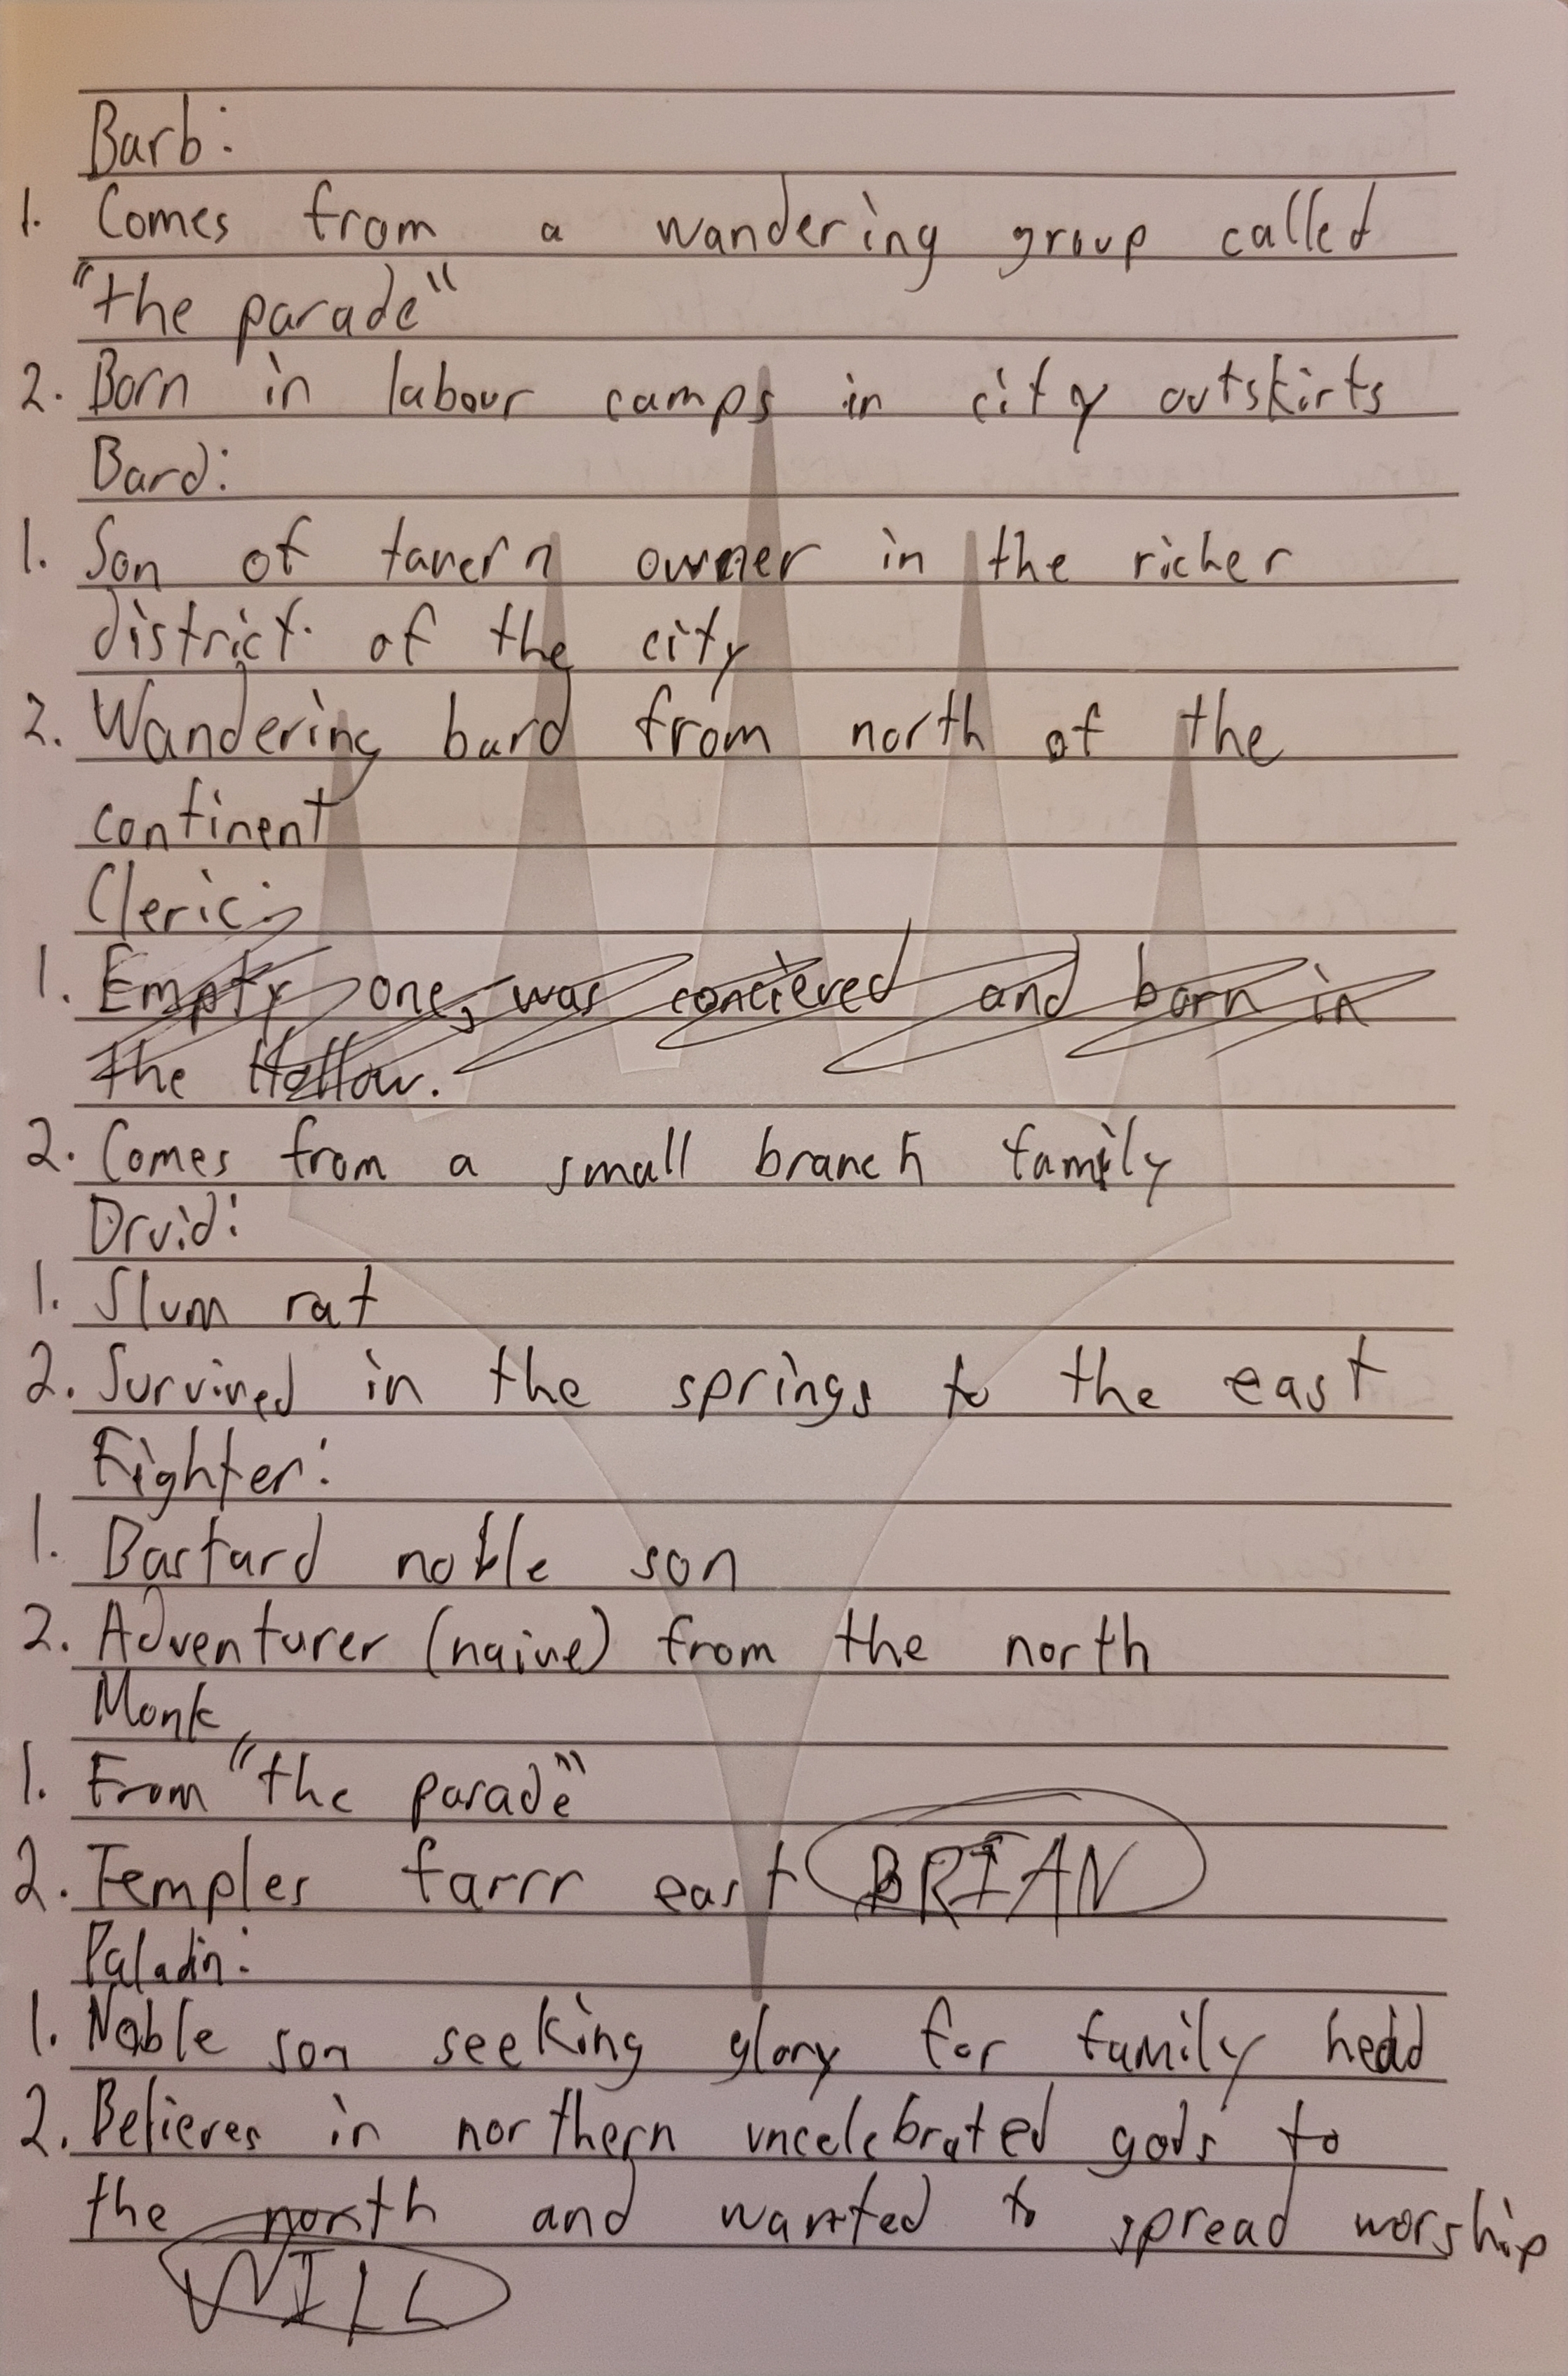 Barb:
1. Comes from a wandering group called
"the parade"
2. Born in labour camps in city outskirts
Bard:
1. Son of tavern owner in the richer
district of the city
2. Wandering bard from north of the
continent
Cleric:
1. Empty one, was concieved and born in
the Hollow.
2. Comes from a small branch family
Druid:
1. Slum rat
2. Survived in the springs to the east
Fighter:
1. Bastard noble son
2. Adventurer (naive) from the north
Monk
1. From "the parade"
2. Temples farrr east BRIAN
Paladin:
1. Noble son seeking glory for family head
2. Believes in northern uncelebrated gods to
the north and wanted to spread worship
WILL